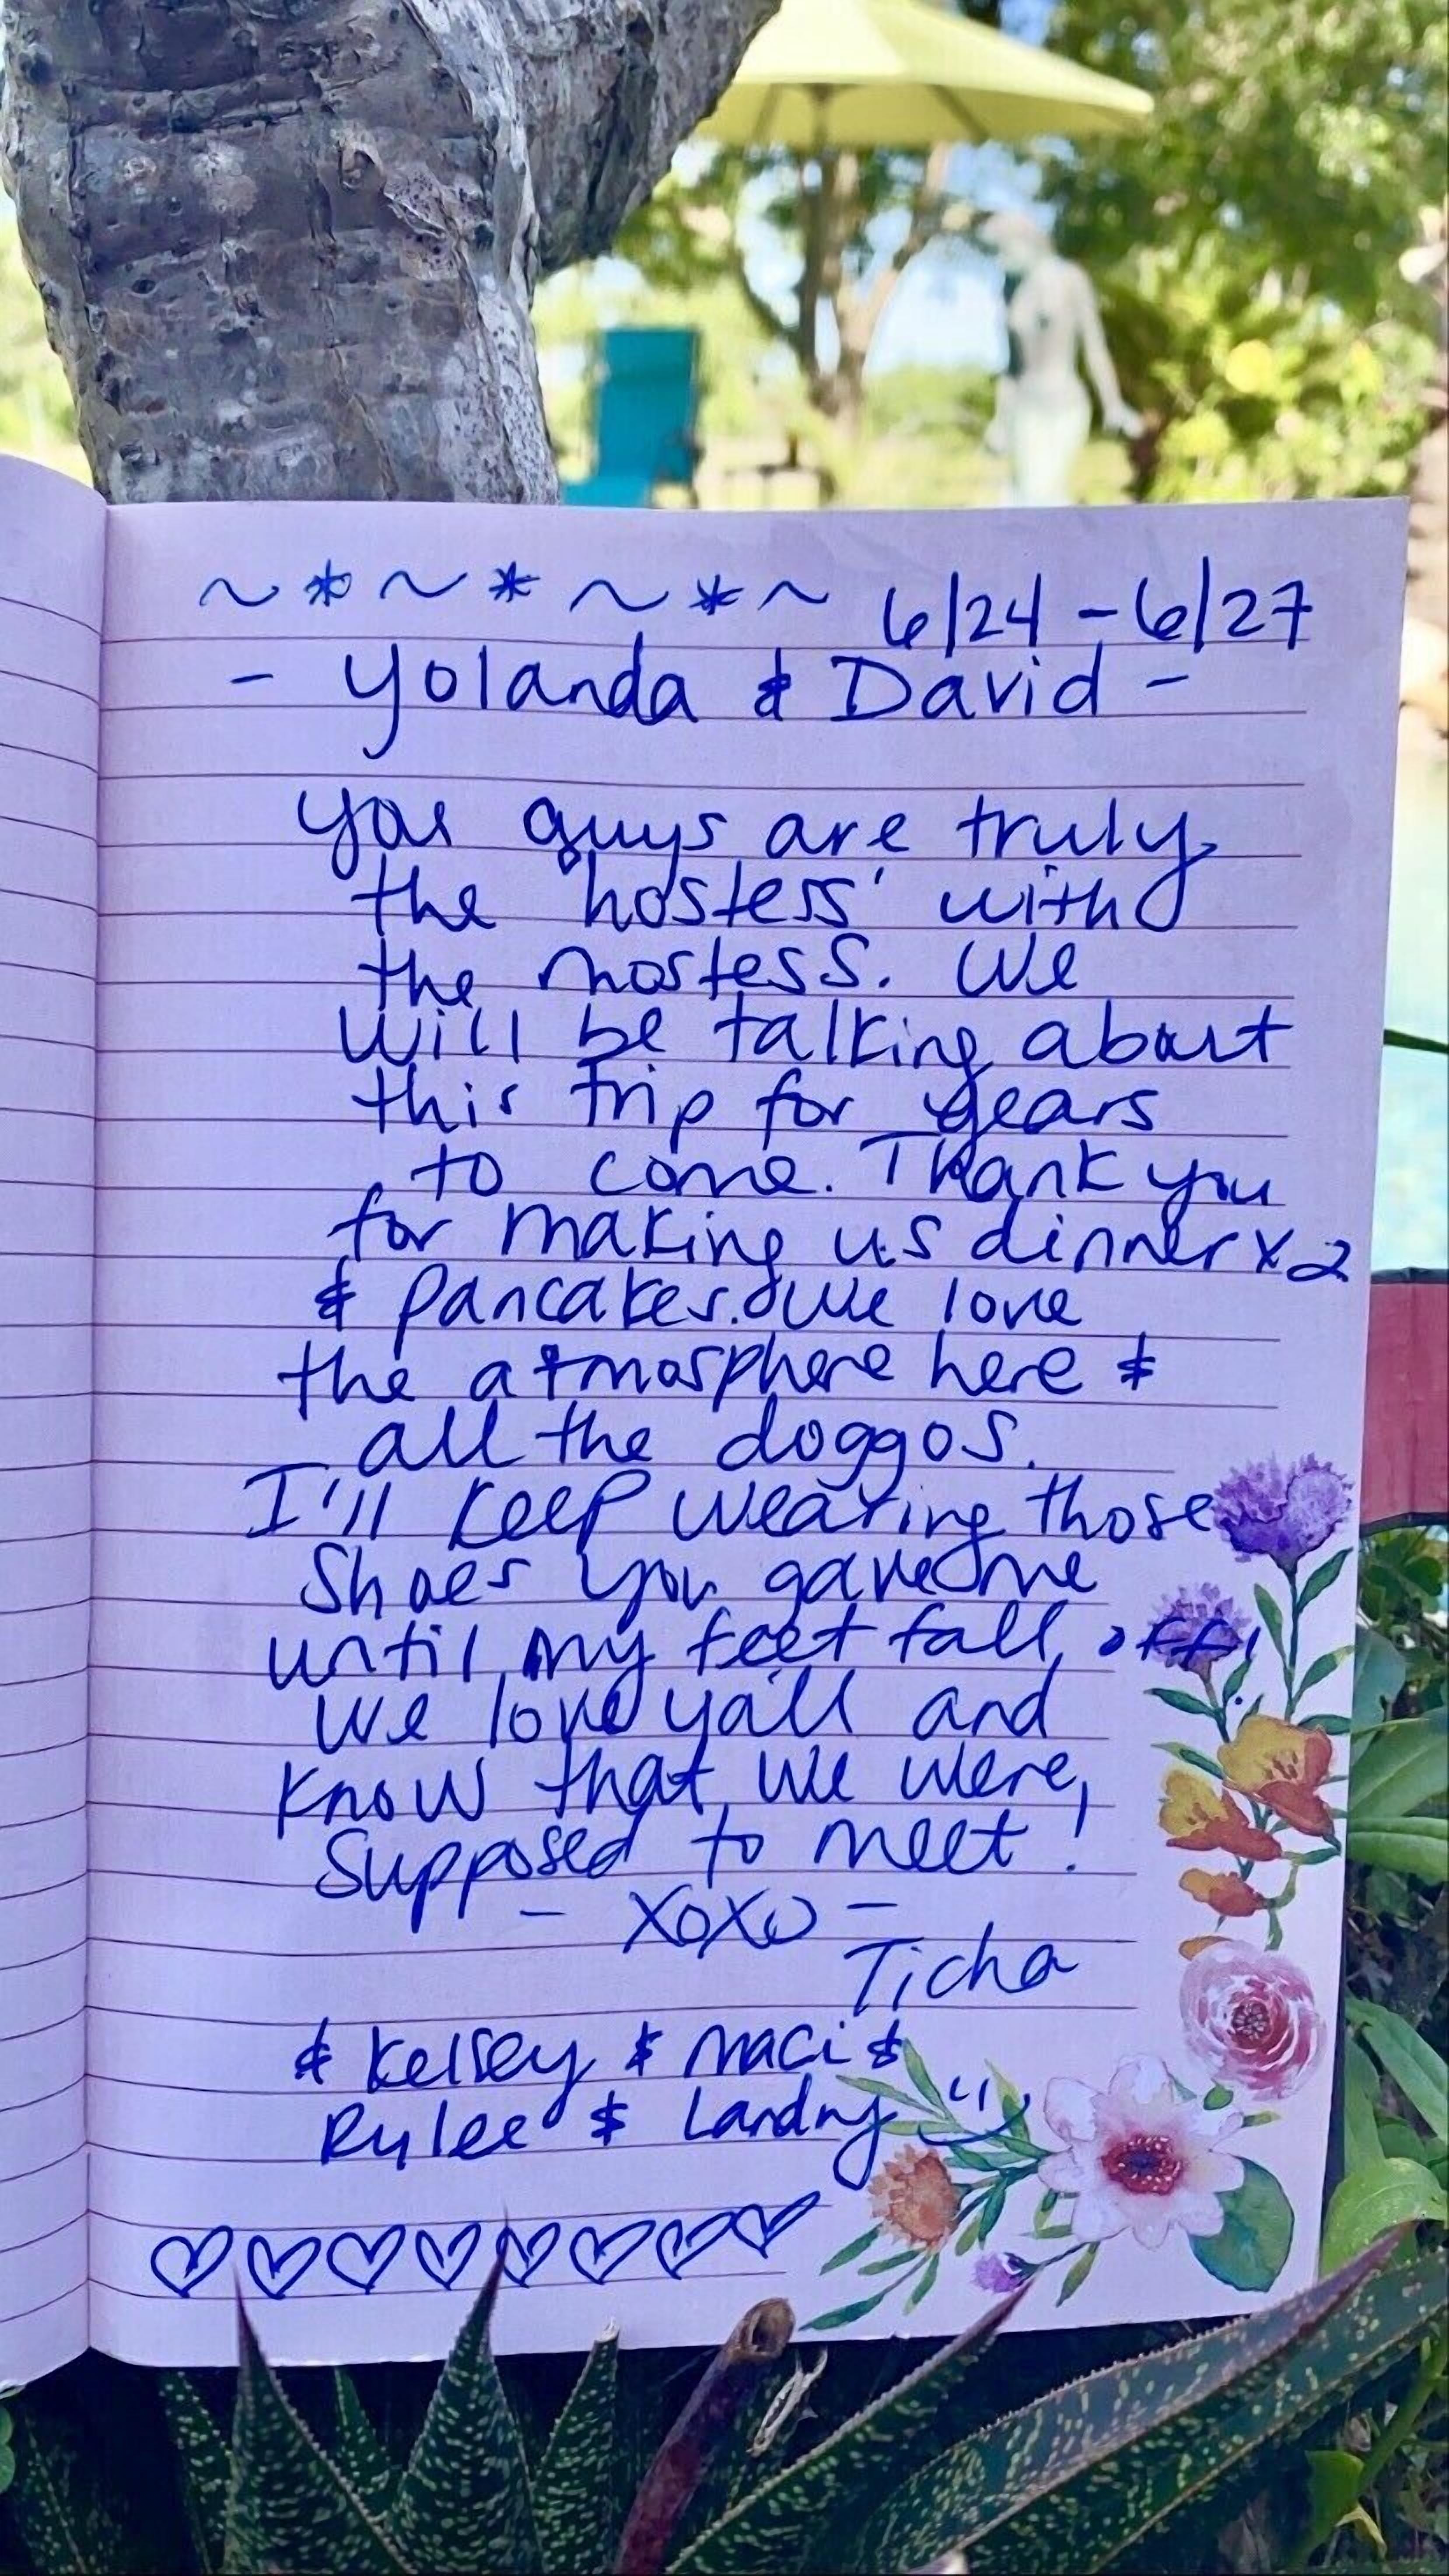 ~ * ~ * ~ * ~ 6/24 - 6/27
- Yolanda & David -
You guys are truly
the "hostess' with
the mostess. We
will be talking about
this trip for years
to come. Thank you
for making us dinner x2
& pancakes. We love
the atmosphere here &
all the doggos.
I'll keep wearing those
shoes you gave me
until my feet fall off!
We love ya'll and
know that we were
supposed to meet!
- XOXO -
Ticha
& Kelsey & Maci &
Rylee & Landry :)
♡♡♡♡♡♡♡♡